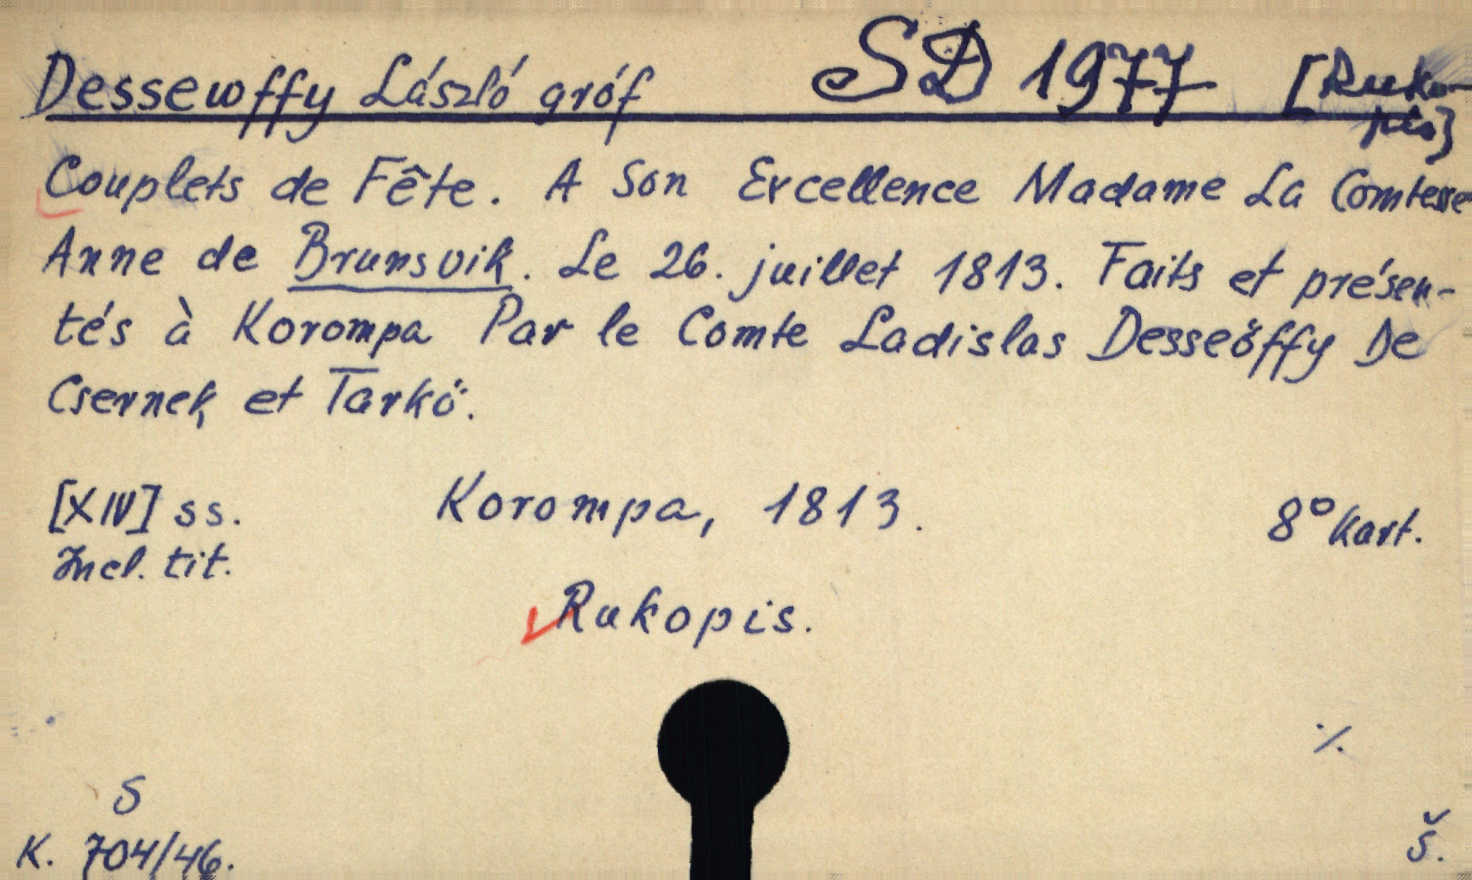 Dessewffy László gróf SD 1977 [Ruko-
pis]
Couplets de Fête. A Son Excellence Madame La Comtesse
Anne de Brunsvik. Le 26. juillet 1813. Faits et présen-
tés à Korompa Par le Comte Ladislas Desseöffy De
Csernek et Tarkö.
[XIV] ss. Korompa, 1813. 8° kart.
Incl. tit.
Rukopis.
%
S
K. 704/46. Š.